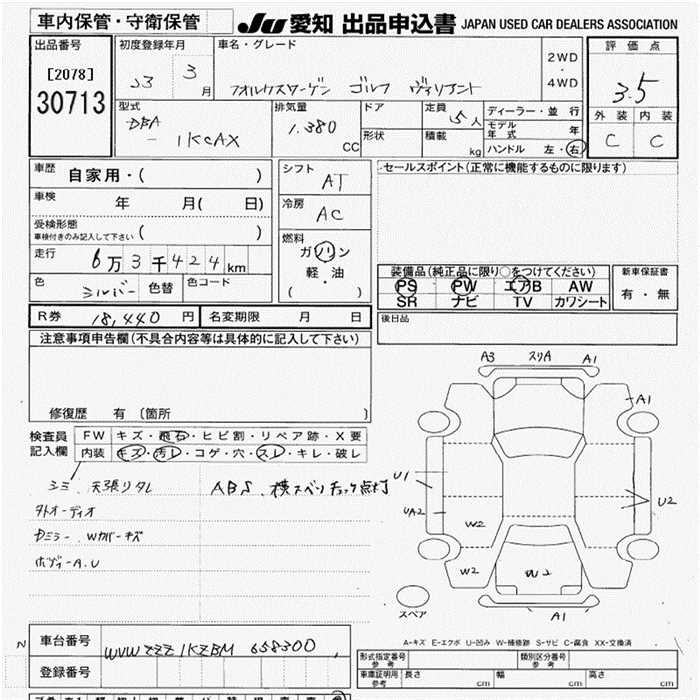 車内保管・守衛保管
JU 愛知 出品申込書 JAPAN USED CAR DEALERS ASSOCIATION
出品番号
[2078]
30713
初度登録年月
23 3 月
車名・グレード
フォルクスワーゲン ゴルフ ヴァリアント
2WD
・
4WD
評価点
3.5
外装 内装
C C
型式
DBA
- 1KCAX
排気量
1.380
CC
ドア
形状
定員
5人
積載
kg
ディーラー・並行
モデル年式 年
ハンドル 左・右
車歴 自家用・( )
車検 年 月( 日)
受検形態
車検付きのみ記入して下さい ( )
走行 6万3千424km
色 シルバー 色替 色コード
シフト
AT
冷房
AC
燃料
ガソリン
軽・油
( )
セールスポイント(正常に機能するものに限ります)
装備品(純正品に限り○をつけてください)
PS PW エアB AW
SR ナビ TV カワシート
新車保証書
有・無
R券 18,440 円 名変期限 月 日
後日品
注意事項申告欄(不具合内容等は具体的に記入して下さい)
修復歴 有 〔箇所 〕
検査員
記入欄
FW キズ・飛石・ヒビ割・リペア跡・X要
内装 キズ・汚レ・コゲ・穴・スレ・キレ・破レ
シミ、天張リタレ
ABS、横スベリチェック点灯
外オーディオ
Dミラー、Wカバーキズ
ボディーA.U
A3 スリA A1
A1
U1
UA2
U2
W2
W2
W2
A1
スペア
A-キズ E-エクボ U-凹み W-補修跡 S-サビ C-腐食 XX-交換済
N
車台番号 WVWZZZ1KZBM658300
登録番号
形式指定番号
参考
類別区分番号
参考
車庫証明用
参考
長さ cm 幅 cm 高さ cm